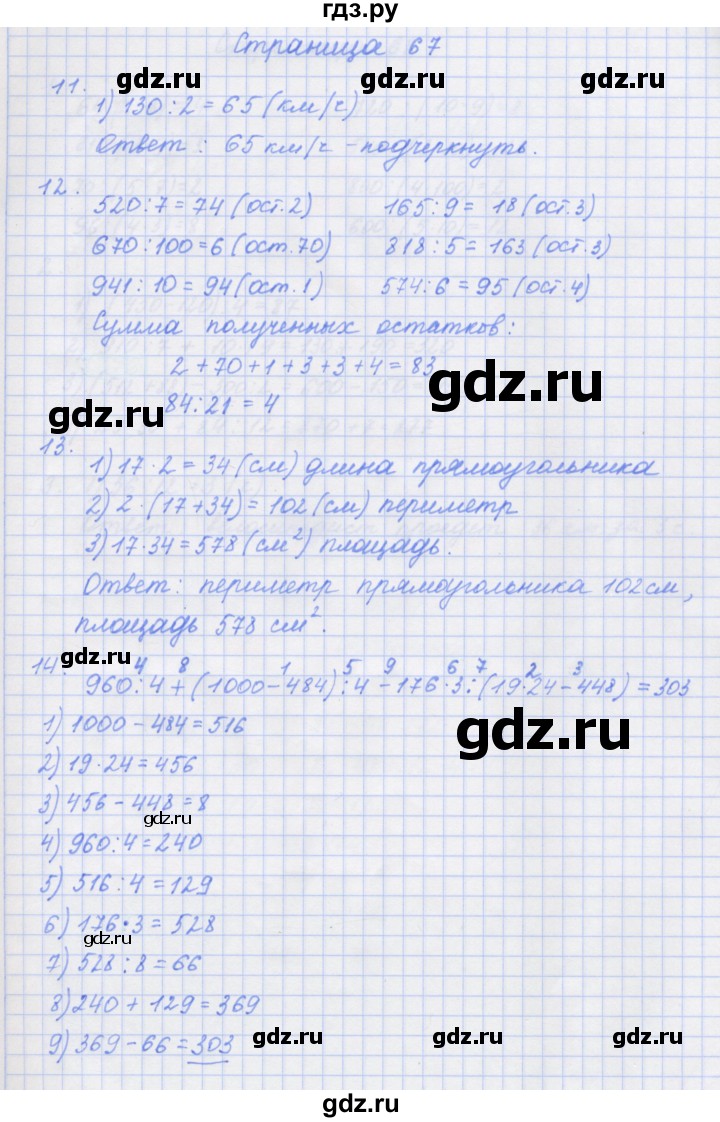 гдз.ру
Страница 67
gdz.ru gdz.ru gdz.ru
11.
1) 130:2=65 (км/ч)
Ответ: 65 км/ч - подчеркнуть.
12.
520:7=74 (ост.2) 165:9= 18 (ост.3)
670:100=6 (ост.70) 818:5=163 (ост.3)
gdz.ru gdz.ru
941:10=94 (ост.1) 574:6=95 (ост.4)
Сумма полученных остатков:
2+70+1+3+3+4=83
gdz.ru
gdz.ru 84:21=4
13.
1) 17·2=34 (см) длина прямоугольника
2) 2·(17+34)=102 (см) периметр
gdz.ru gdz.ru gdz.ru
3) 17·34=578 (см²) площадь.
Ответ: периметр прямоугольника 102 см,
площадь 578 см².
14. 4 8 1 5 9 6 7 2 3
960:4+(1000-484):4-176·3:(19·24-448)=303
1) 1000-484=516
gdz.ru
2) 19·24=456
3) 456-448=8
gdz.ru
4) 960:4=240
5) 516:4=129
6) 176·3=528
gdz.ru
7) 528:8=66
8) 240+129=369
9) 369-66=303
gdz.ru gdz.ru gdz.ru
gdz.ru